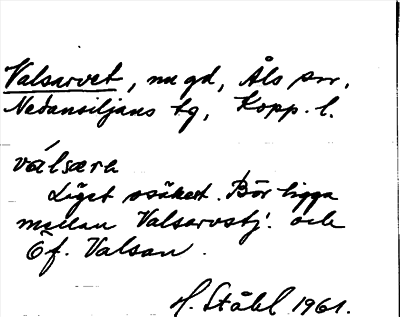 Valsarvet, nu gd, Åls sn,
Nedansiljans tg, Kopp. l.
válsærn
Läget osäkert. Bör ligga
mellan Valsarvstj. och
Öf. Valsan.
H. Ståhl 1961.